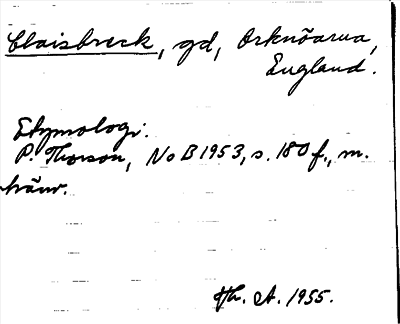 Claisbreck, gd, Orknöarna,
England.
Etymologi:
P. Thorson, NoB 1953, s. 180 f., m.
hänv.
Hh. A. 1955.